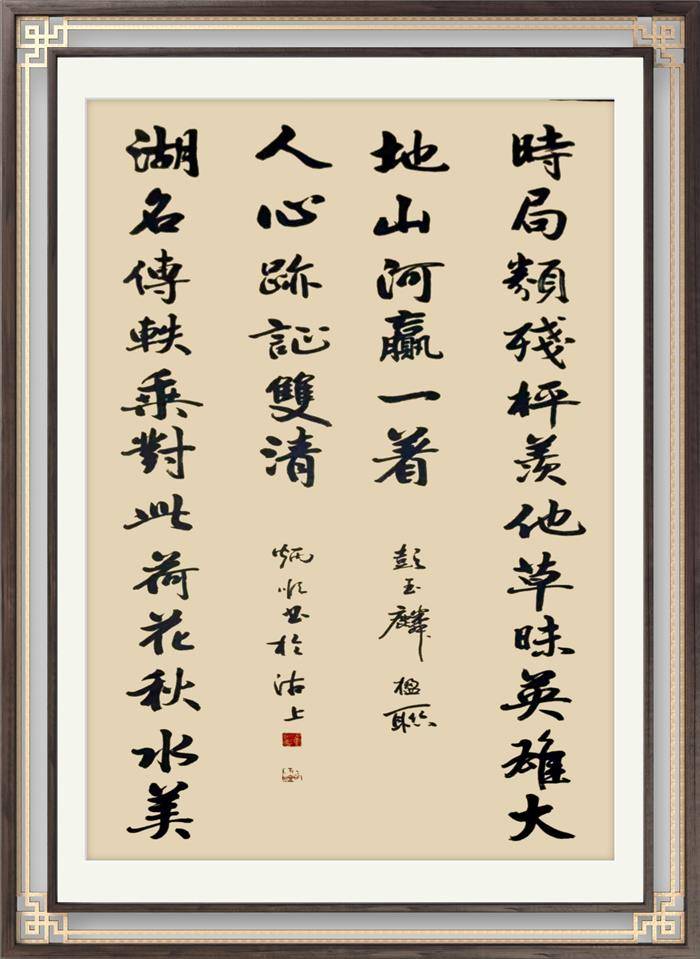 時局類殘枰羨他草昧英雄大
地山河贏一著
彭玉麟楹聯
湖名傳軼乘對此荷花秋水美
人心跡証雙清
炳順書於沽上